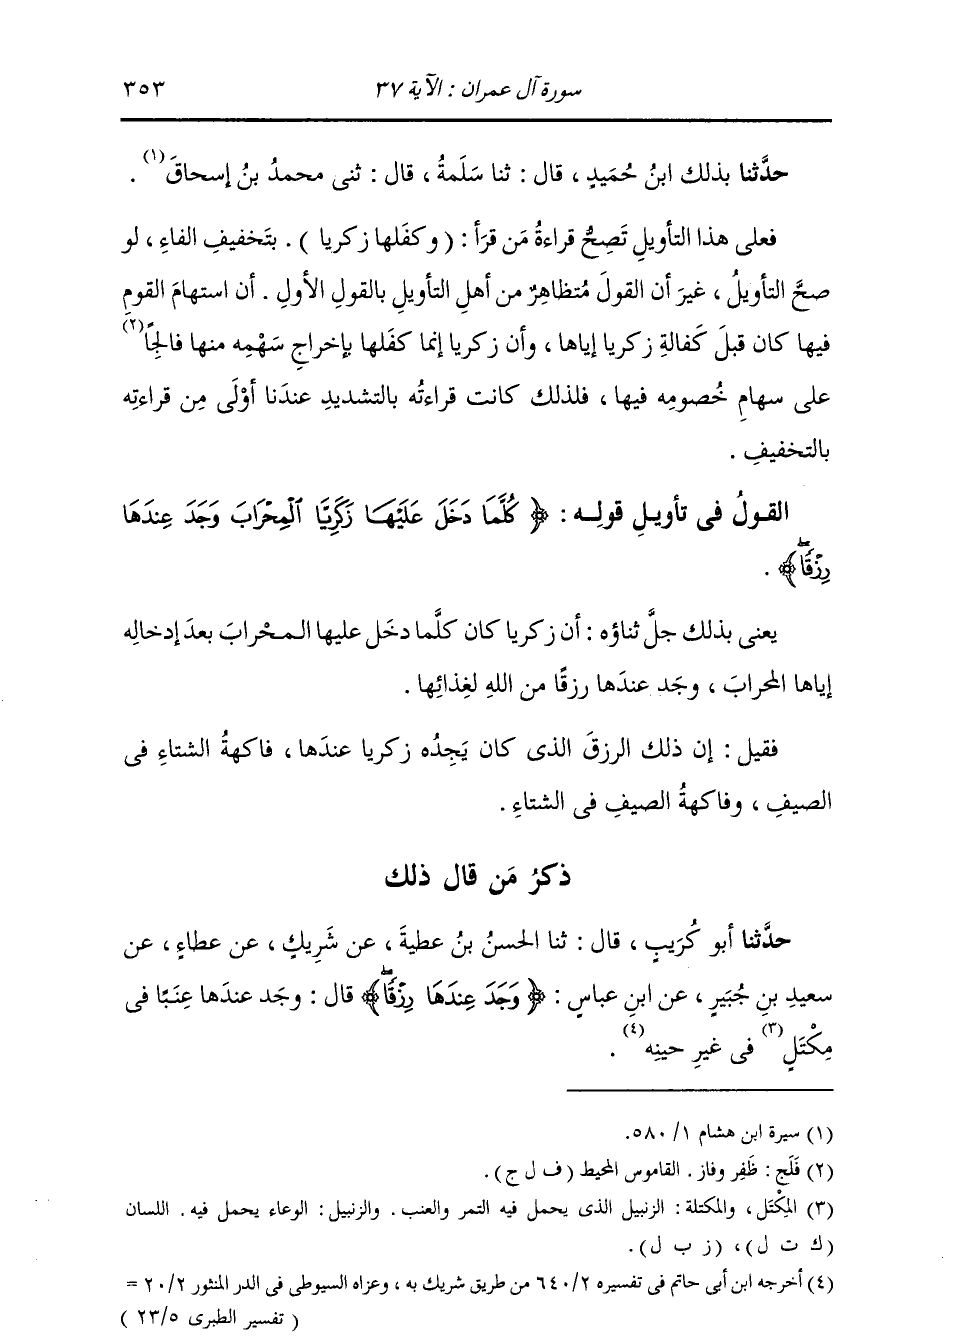 سورة آل عمران : الآية ٣٧ ٣٥٣
حدَّثنا بذلك ابنُ حُمَيدٍ ، قال : ثنا سَلَمةُ ، قال : ثنى محمدُ بنُ إسحاقَ(١) .
فعلى هذا التأويلِ تَصِحُّ قراءةُ مَن قرَأ : ( وكفَلها زكريا ) . بتَخفيفِ الفاءِ ، لو
صحَّ التأويلُ ، غيرَ أن القولَ مُتظاهِرٌ من أهلِ التأويلِ بالقولِ الأولِ . أن استهامَ القومِ
فيها كان قبلَ كَفالةِ زكريا إياها ، وأن زكريا إنما كفَلها بإخراجِ سَهْمِه منها فالِجًا(٢)
على سهامِ خُصومِه فيها ، فلذلك كانت قراءتُه بالتشديدِ عندَنا أوْلَى مِن قراءتِه
بالتخفيفِ .
القولُ فى تأويلِ قولِه : ﴿ كُلَّمَا دَخَلَ عَلَيْهَا زَكَرِيَّا ٱلْمِحْرَابَ وَجَدَ عِندَهَا
رِزْقًاۖ ﴾ .
يعنى بذلك جلَّ ثناؤه : أن زكريا كان كلَّما دخَل عليها المحْرابَ بعدَ إدخالِه
إياها المحرابَ ، وجَد عندَها رزقًا من اللهِ لغِذائِها .
فقيل : إن ذلك الرزقَ الذى كان يَجِدُه زكريا عندَها ، فاكهةُ الشتاءِ فى
الصيفِ ، وفاكهةُ الصيفِ فى الشتاءِ .
ذكرُ مَن قال ذلك
حدَّثنا أبو كُرَيبٍ ، قال : ثنا الحسنُ بنُ عطيةَ ، عن شَرِيكٍ ، عن عطاءٍ ، عن
سعيدِ بنِ جُبَيرٍ ، عن ابنِ عباسٍ : ﴿ وَجَدَ عِندَهَا رِزْقًاۖ ﴾ قال : وجَد عندَها عِنَبًا فى
مِكْتَلٍ(٣) فى غيرِ حينِه(٤) .
(١) سيرة ابن هشام ١/ ٥٨٠.
(٢) فَلَج : ظَفِر وفاز . القاموس المحيط ( ف ل ج ) .
(٣) المِكْتَل ، والمكتلة : الزنبيل الذى يحمل فيه التمر والعنب . والزنبيل : الوعاء يحمل فيه . اللسان
(ك ت ل) ، (ز ب ل) .
(٤) أخرجه ابن أبى حاتم فى تفسيره ٦٤٠/٢ من طريق شريك به ، وعزاه السيوطى فى الدر المنثور ٢٠/٢ =
( تفسير الطبرى ٢٣/٥ )